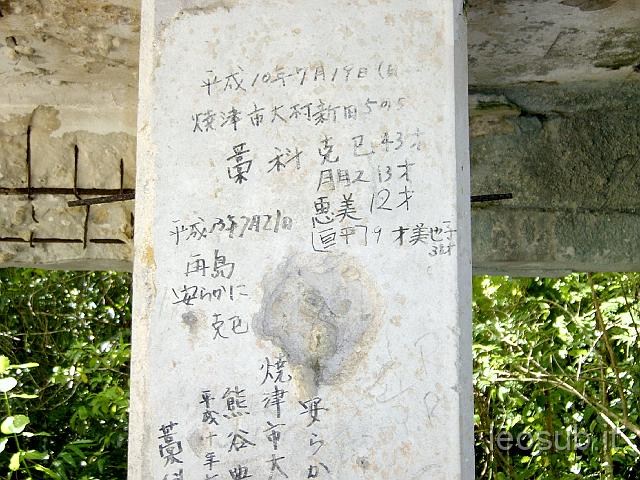 平成10年7月19日(日
焼津市大村新田505
藁科 克巳 43才
13才
恵美 12才
亘 9才 美也子
38才
平成13年7月21日
再島
安らかに
克巳
安らか
焼津市大
熊谷
平成十年
藁科
leosub.it